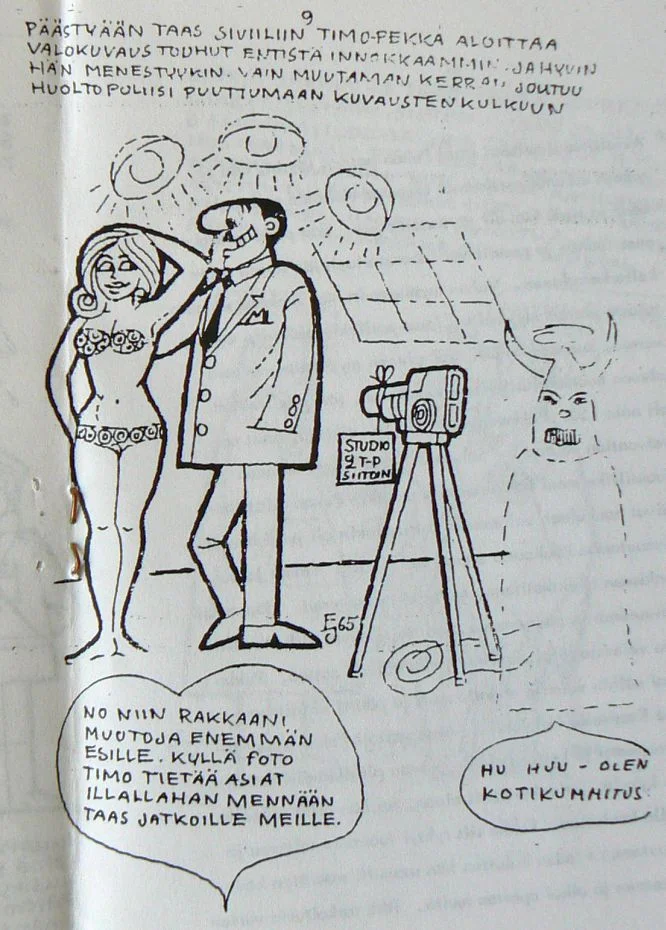 9
PÄÄSTYÄÄN TAAS SIVIILIIN TIMO-PEKKA ALOITTAA
VALOKUVAUS TOUHUT ENTISTÄ INNOKKAAMMIN. JA HYVIN
HÄN MENESTYYKIN. VAIN MUUTAMAN KERRAN JOUTUU
HUOLTOPOLIISI PUUTTUMAAN KUVAUSTEN KULKUUN
STUDIO
T-P
SIITOIN
EJ65
NO NIIN RAKKAANI
MUOTOJA ENEMMÄN
ESILLE. KYLLÄ FOTO
TIMO TIETÄÄ ASIAT
ILLALLAHAN MENNÄÄN
TAAS JATKOILLE MEILLE.
HU HUU - OLEN
KOTIKUMMITUS